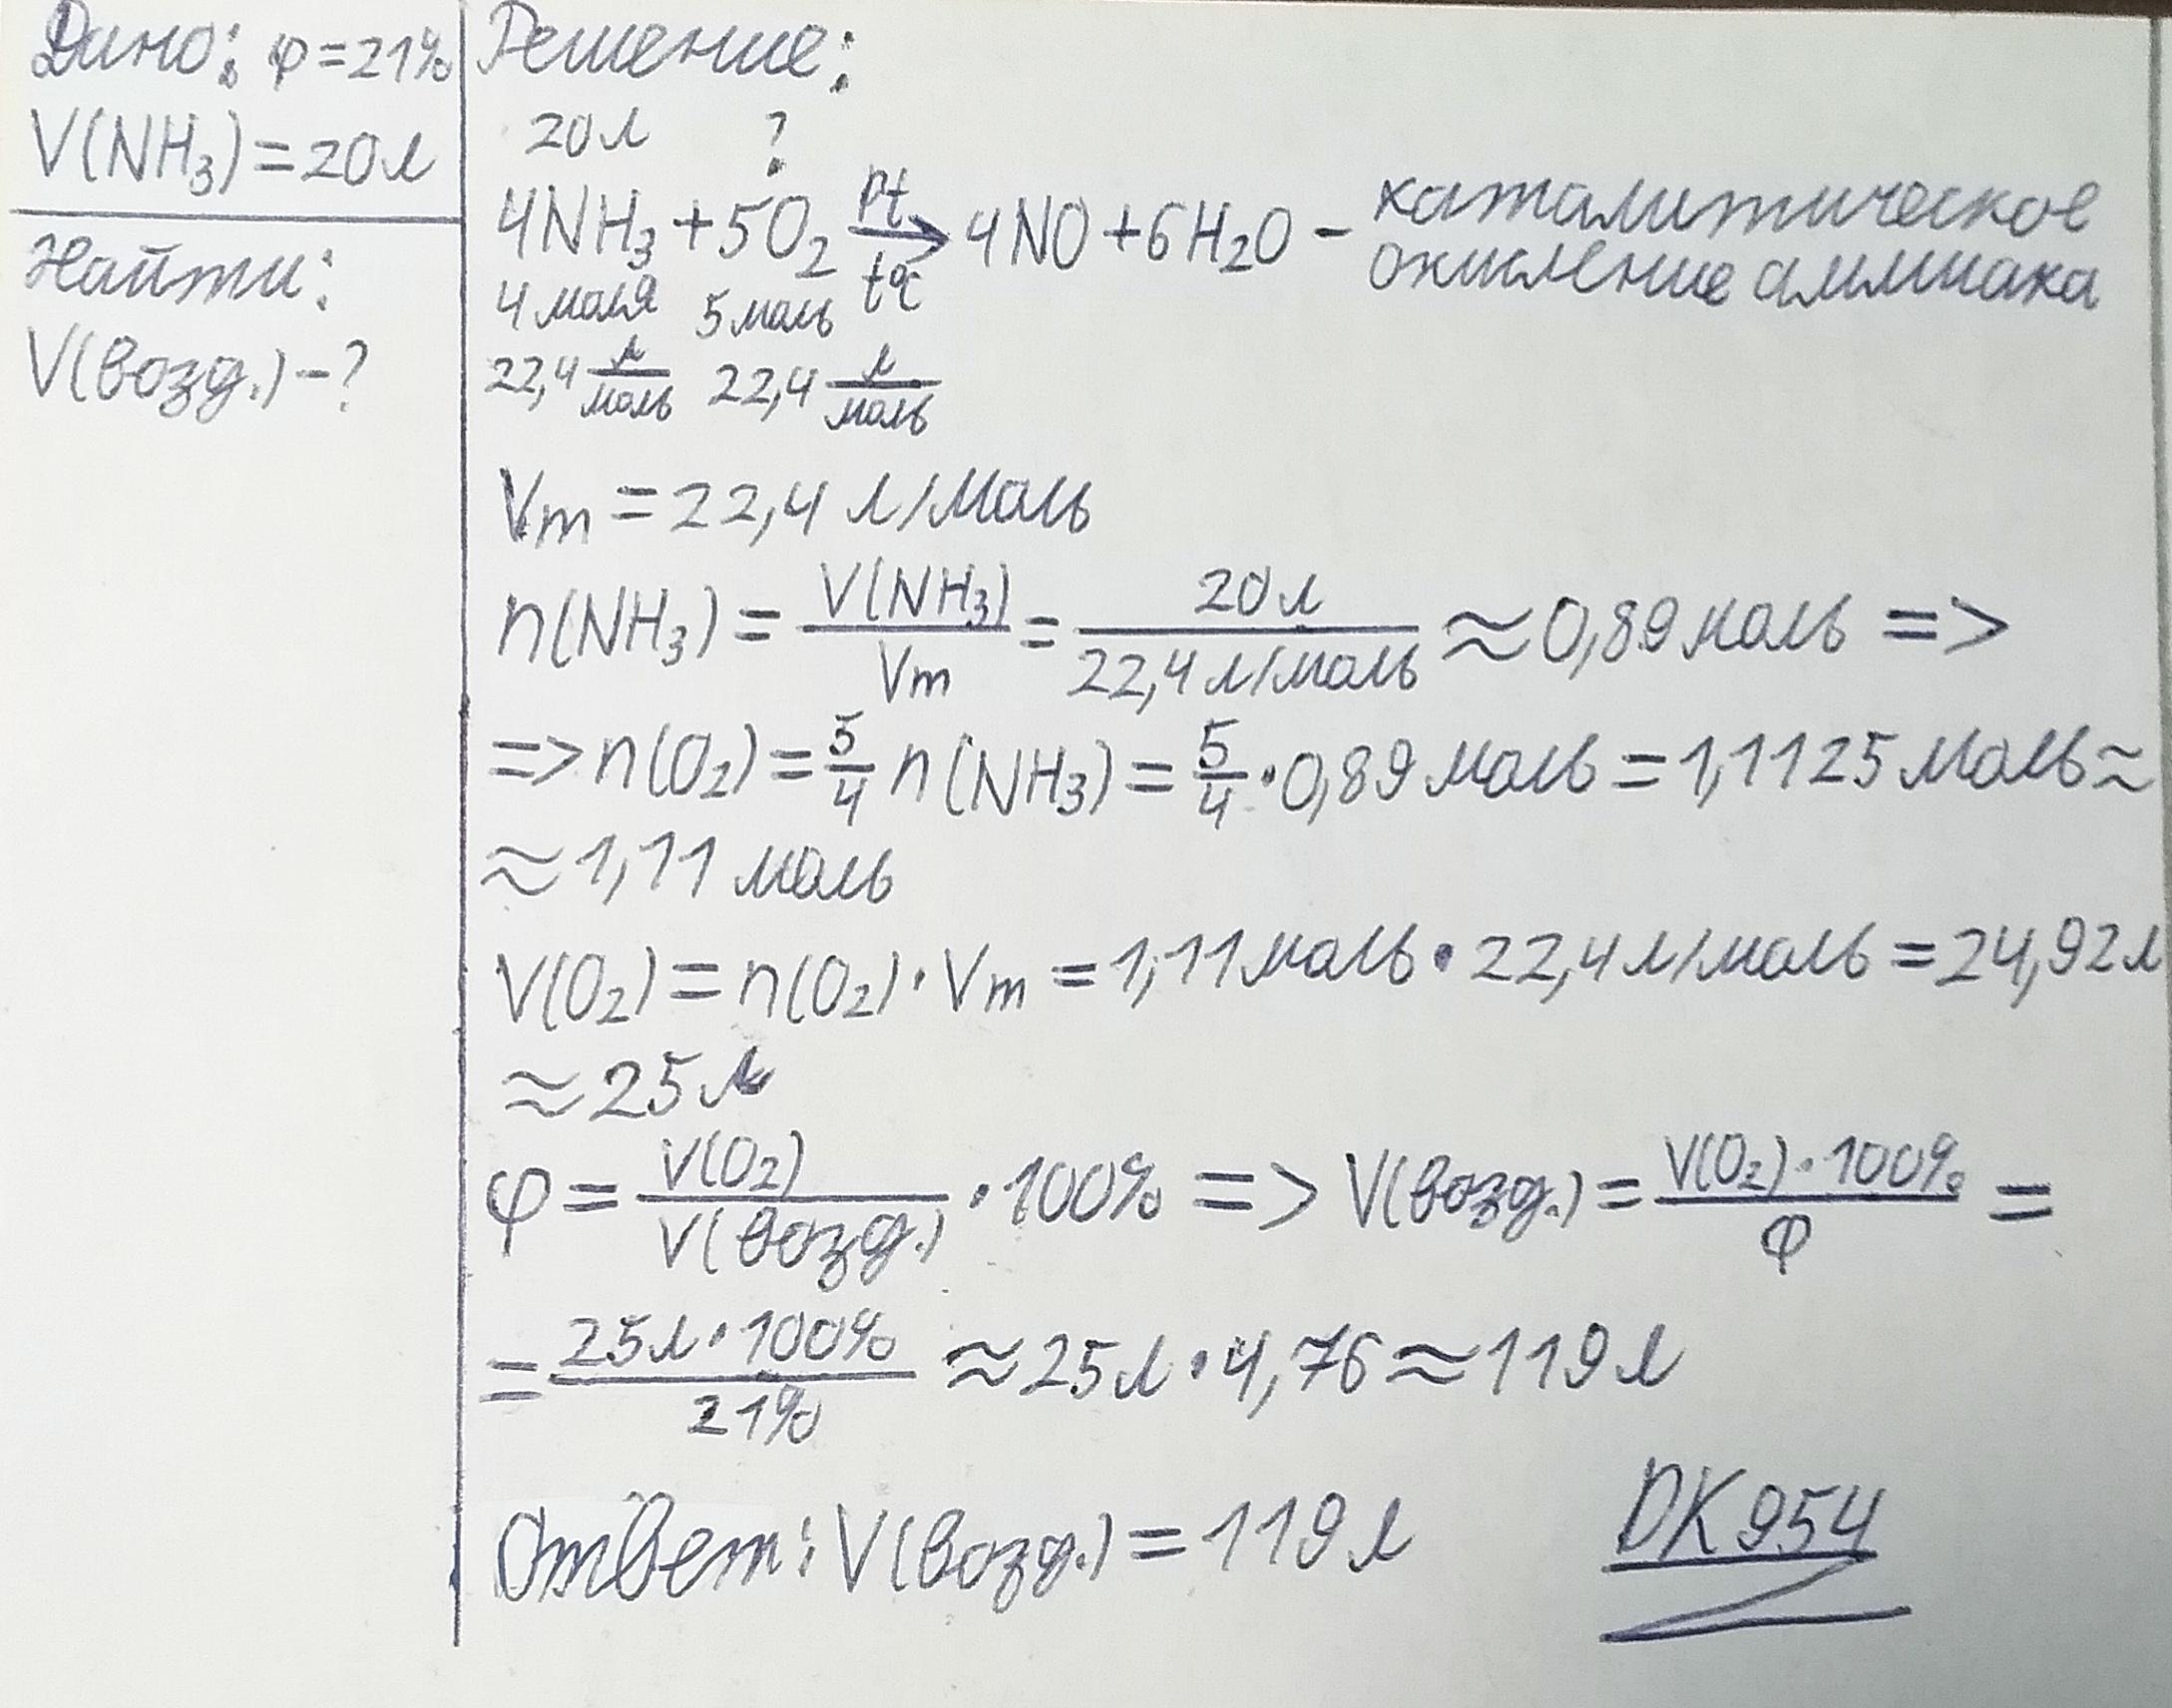 Дано: φ=21%
V(NH₃)=20л
Найти:
V(возд.)-?
Решение:
20л ?
Pt
4NH₃+5O₂ → 4NO+6H₂O - каталитическое
t°C окисление аммиака
4 моля 5 моль
22,4 л/моль 22,4 л/моль
Vm = 22,4 л/моль
n(NH₃) = V(NH₃)/Vm = 20л/22,4 л/моль ≈ 0,89 моль =>
=> n(O₂) = 5/4 n(NH₃) = 5/4 · 0,89 моль = 1,1125 моль ≈
≈ 1,11 моль
V(O₂) = n(O₂) · Vm = 1,11 моль · 22,4 л/моль = 24,92 л
≈ 25 л
φ = V(O₂)/V(возд.) · 100% => V(возд.) = V(O₂) · 100%/φ =
= 25л · 100%/21% ≈ 25 л · 4,76 ≈ 119 л
Ответ: V(возд.) = 119 л
DK954